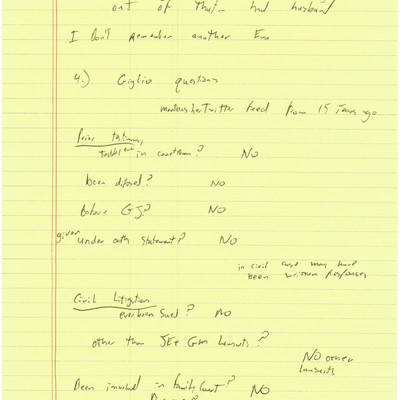 out of that had husband
I Don't remember another Eva
4.) Giglio questions
mentions her Twitter feed from 15 years ago
Prior testimony
in courtroom? NO
been deposed? NO
Before GJ? NO
given under oath statement? NO
in civil case may have
been written responses
Civil Litigation
ever been sued? NO
other than JE & GM lawsuits?
NO other
lawsuits
Been involved in family court? NO